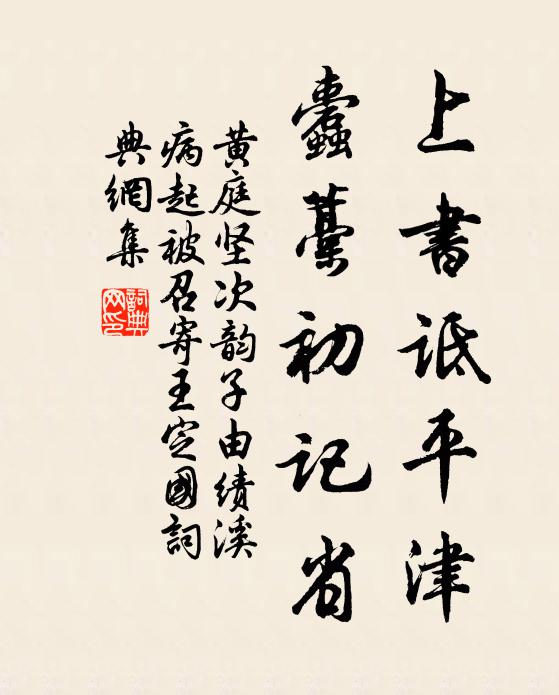 上書詆平津
蠹藁初记省
黄庭坚次韵子由绩溪
病起被召寄王定國詞
典網集
詞典网印